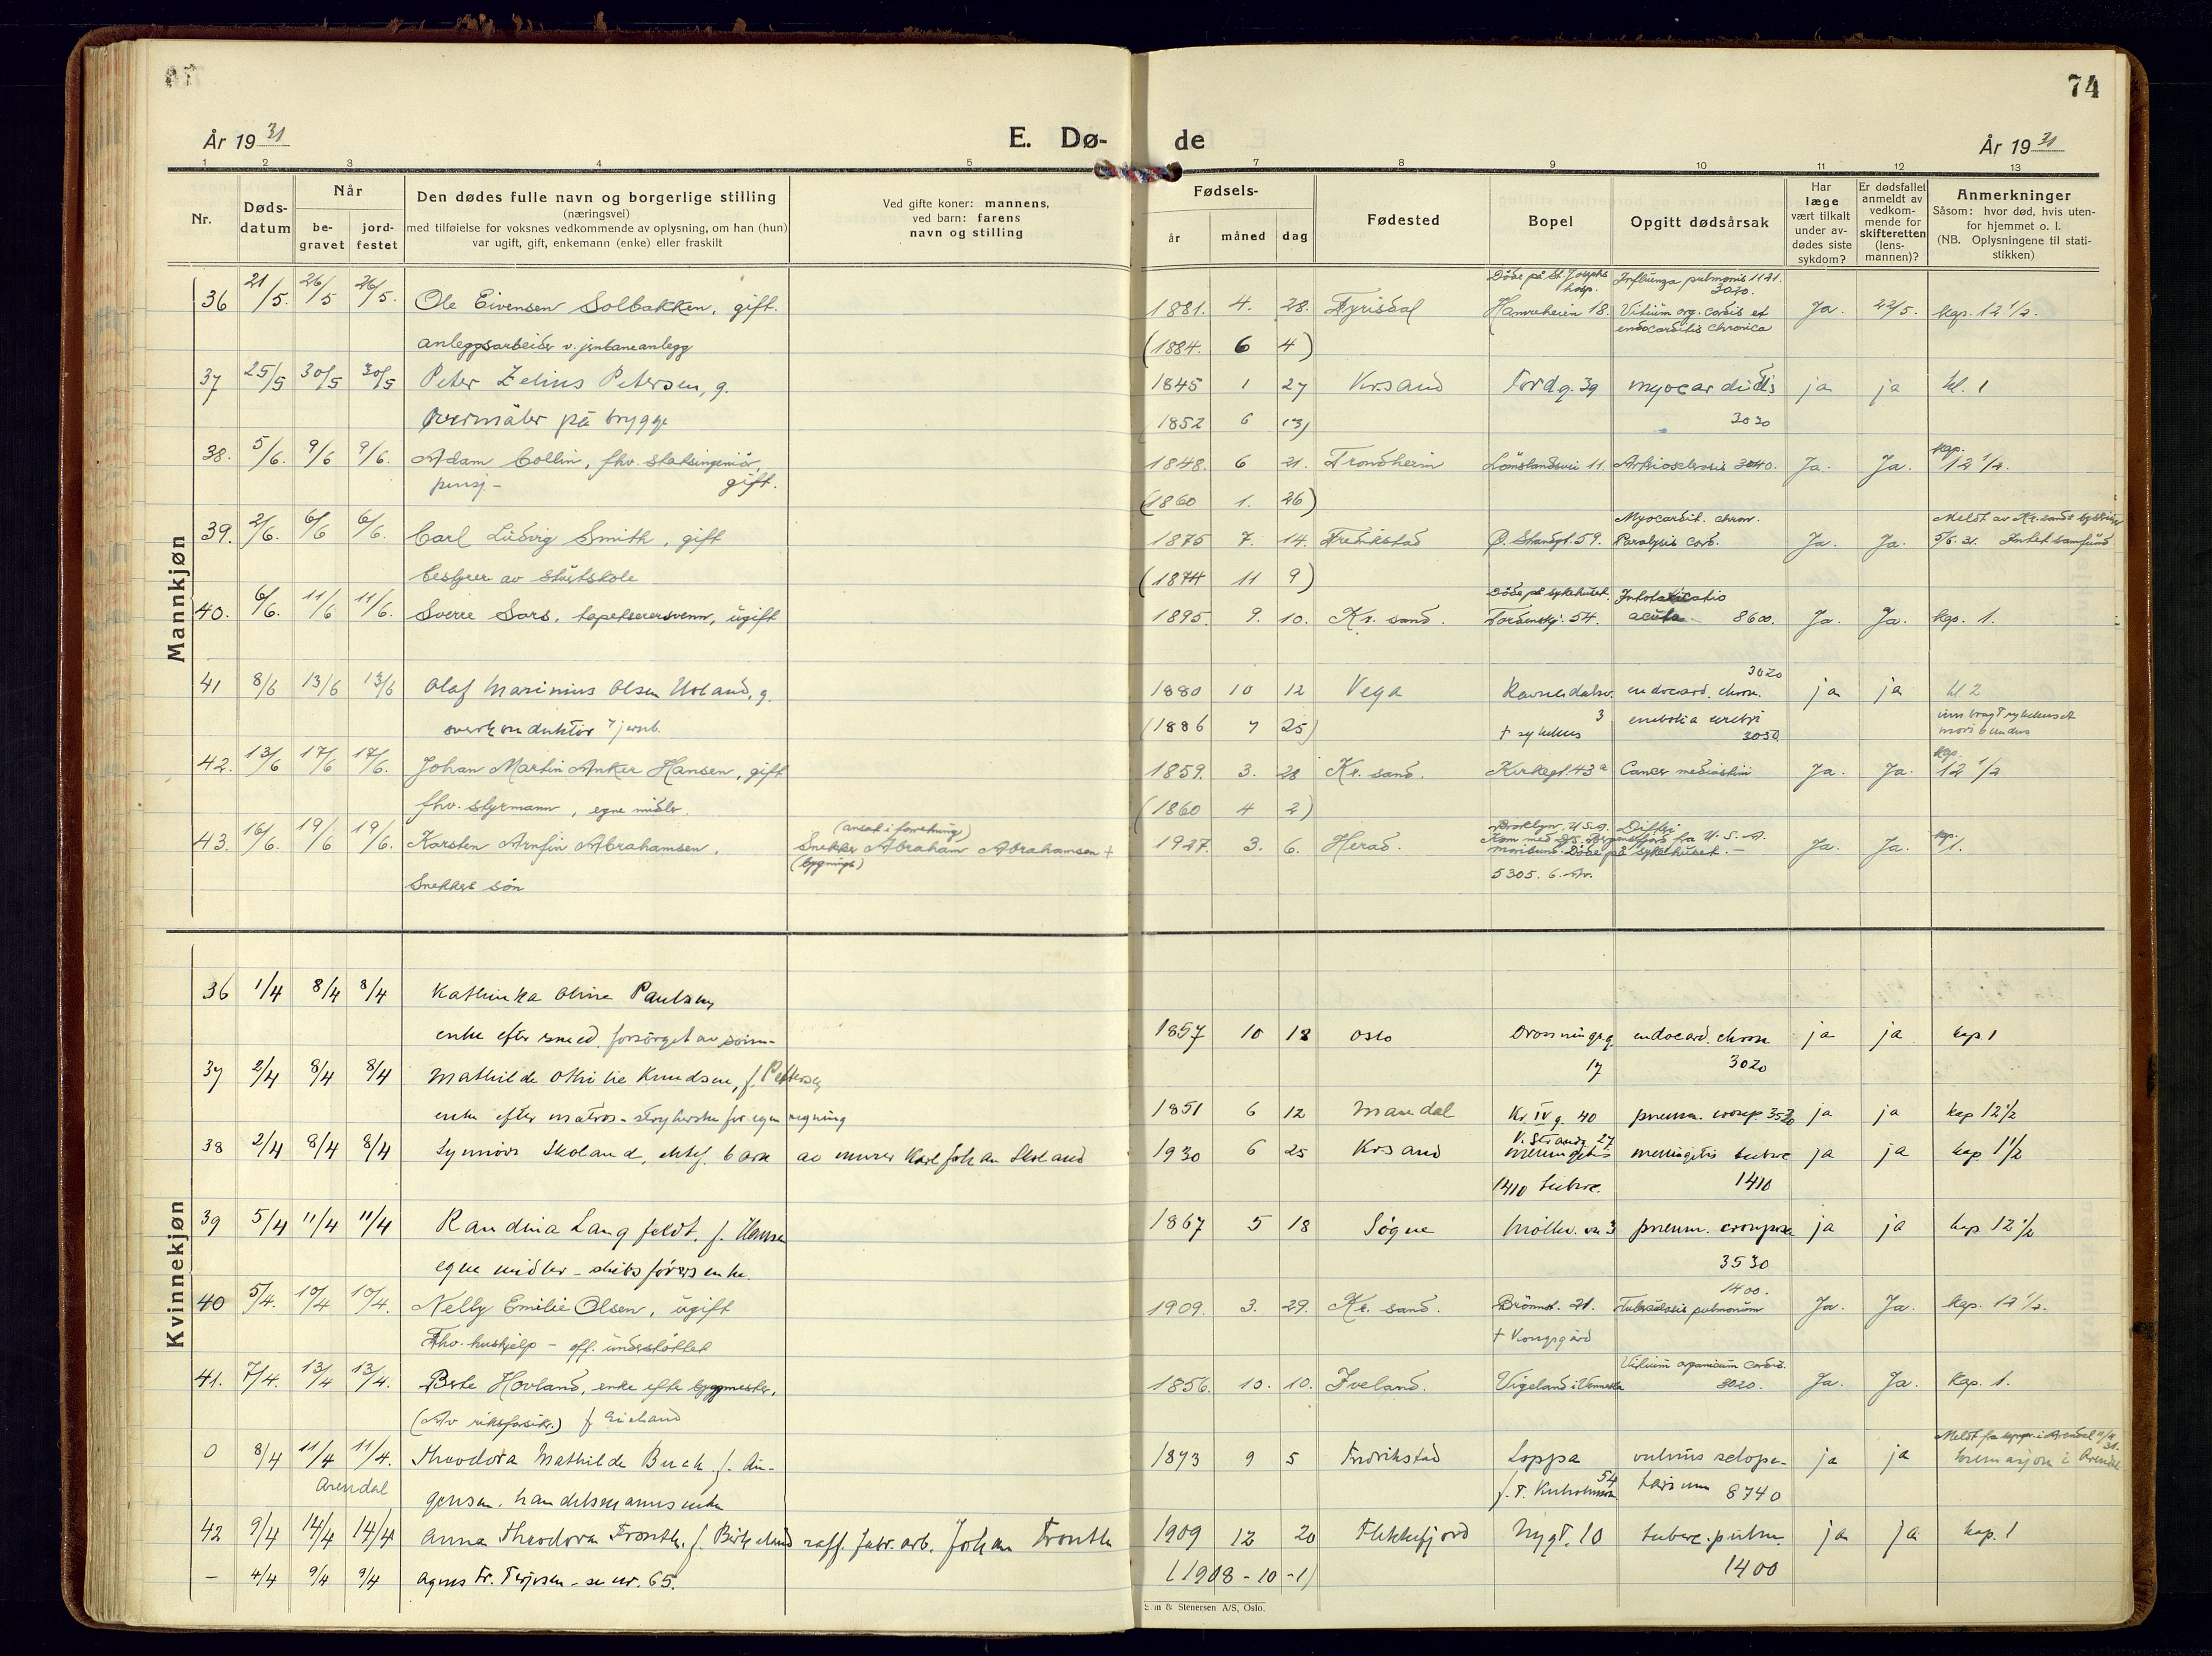 74
År 1931
E. Dø-
de
År 1931
1 2 3 4 5 7 8 9 10 11 12 13
Nr.
Døds-
datum
Når
be-
gravet
jord-
festet
Den dødes fulle navn og borgerlige stilling
(næringsvei)
med tilføielse for voksnes vedkommende av oplysning, om han (hun)
var ugift, gift, enkemann (enke) eller fraskilt
Ved gifte koner: mannens,
ved barn: farens
navn og stilling
Fødsels-
år
måned
dag
Fødested
Bopel
Opgitt dødsårsak
Har
læge
vært tilkalt
under av-
dødes siste
sykdom?
Er dødsfallet
anmeldt av
vedkom-
mende for
skifteretten
(lens-
mannen)?
Anmerkninger
Såsom: hvor død, hvis uten-
for hjemmet o. l.
(NB. Oplysningene til stati-
stikken)
Mannkjøn
Døde på St. Josephs hosp. Influenza pulmonis 1121.
3020.
36 21/5. 26/5 26/5. Ole Eivensen Solbakken, gift. 1881. 4. 28. Fyrisdal Hamreheien 18. Vitium org. cordis et Ja. 22/5. kap. 12 1/2.
endocarditis chronica
anleggsarbeider v. jernbaneanlegg (1884. 6 4)
37 25/5 30/5 30/5 Peter Zelius Petersen, g. 1845 1 27 Krsand Tordg. 39 myocarditis ja ja kl. 1
på brygge 1852 6 3020
38. 5/6. 9/6 9/6. Adam Collin, fhv. statsingeniør, 1848. 6 21. Trondheim 11. 3040. Ja. Ja. kap. 12 1/2.
pensj - gift. (1860 1. 26)
Myocardit. chron.
39. 2/6. 6/6 6/6. Carl Ludvig Smith, gift 1875 7. 14. Fredrikstad Ø. Strandgt. 59. Paralysis cord. Ja. Ja. 5/6. 31.
bestyrer av (1874 11 9)
Døde på sykehuset.
40. 6/6. 11/6 11/6. Sverre Sars, tapetserersvenn, ugift 1895. 9. 10. Kr. sand. Tordenskj. 54. acuta 8600. Ja. Ja. kap. 1.
3020
41 8/6 13/6 13/6 Olaf Marinius Olsen g. 1880 10 12 Vega endocard. chron. ja ja kl 2
overkonduktør v jernb. (1886 7 25) 3 + sykehus embolia cerebri
3050
moribundus
42. 13/6 17/6 17/6. Johan Martin Anker Hansen, gift 1859. 3. 28 Kr. sand. Kirkegt. 43a Cancer mediastini Ja. Ja. kap. 12 1/2
fhv. styrmann, egne midler. (1860 4 2)
(ansat i forretning) Brooklyn, U.S.A. Difteri
43. 16/6. 19/6 19/6. Karsten Arnfin Abrahamsen, Snekker Abraham Abrahamsen + 1927. 3. 6. Herad. Kom med fra U.S.A. Ja. Ja. kap. 1.
(bygnings) moribund. Døde på sykehuset. -
Snekkers søn 5305. 6. Av.
Kvinnekjøn
36 1/4 8/4 8/4 Kathinka Oline Paulsen
enke efter smed, forsørget av sønn- 1857 10 18 Oslo Dronningsg. endocard. chron ja ja kap. 1
17 3020
37 2/4 8/4 8/4 Mathilde Othilie Knudsen, f. Pettersen
enke efter matros - strykerske for egen regning 1851 6 12 Mandal Kr. IV g. 40 pneum. croup. 3520 ja ja kap 12 1/2
V. Strandg. 27
38 2/4 8/4 8/4 Synnøve Skoland, ektef. barn av murer Karl Johan Skoland 1930 6 25 Krsand meningitis meningitis tuberc ja ja kap. 1 1/2
1410 tuberc. 1410
39 5/4 11/4 11/4 Randina Langfeldt, f. Hansen 1867 5 18 Søgne 3 pneum. crouposa ja ja kap 12 1/2
egne midler - skibsførers enke. 3530
1400.
40 5/4. 10/4 10/4. Nelly Emilie Olsen, ugift 1909. 3. 29. Kr. sand. 21. Tuberculosis pulmonum Ja. Ja. kap. 12 1/2.
Fhv. hushjelp - off. understøttet + Kongsgård
Vitium organicum cordis.
41. 7/4. 13/4 13/4. Berte Hovland, enke efter byggmester. 1856. 10. 10. Iveland. Vigeland i Vennesla 3020. Ja. Ja. Kap. 1.
(Av f
0 8/4 11/4 11/4. Theodora Mathilde Buch f. Aa- 1873 9 5 Fredrikstad Loppa vulnus sclope- ja ja kremasjon i Arendal
Arendal gensen. handelsmanns enke 54 tarium 8740
42 9/4 14/4 14/4 Anna Theodora f. Birkeland raff. fabr. arb. Johan 1909 12 20 Flekkefjord Nygt. 10 tuberc. pulm. ja ja kap. 1
— 4/4 9/4 9/4 Agnes Fr. Terjesen - se nr. 65. (1908 - 10 - 1) 1400
& Stenersen A/S, Oslo.